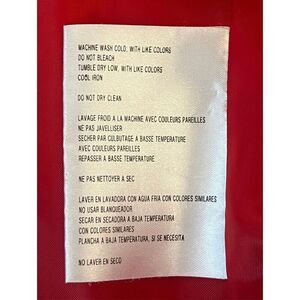 MACHINE WASH COLD, WITH LIKE COLORS
DO NOT BLEACH
TUMBLE DRY LOW, WITH LIKE COLORS
COOL IRON
DO NOT DRY CLEAN
LAVAGE FROID A LA MACHINE AVEC COULEURS PAREILLES
NE PAS JAVELLISER
SECHER PAR CULBUTAGE A BASSE TEMPERATURE
AVEC COULEURS PAREILLES
REPASSER A BASSE TEMPERATURE
NE PAS NETTOYER A SEC
LAVER EN LAVADORA CON AGUA FRIA CON COLORES SIMILARES
NO USAR BLANQUEADOR
SECAR EN SECADORA A BAJA TEMPERATURA
CON COLORES SIMILARES
PLANCHA A BAJA TEMPERATURA, SI SE NECESITA
NO LAVER EN SECO